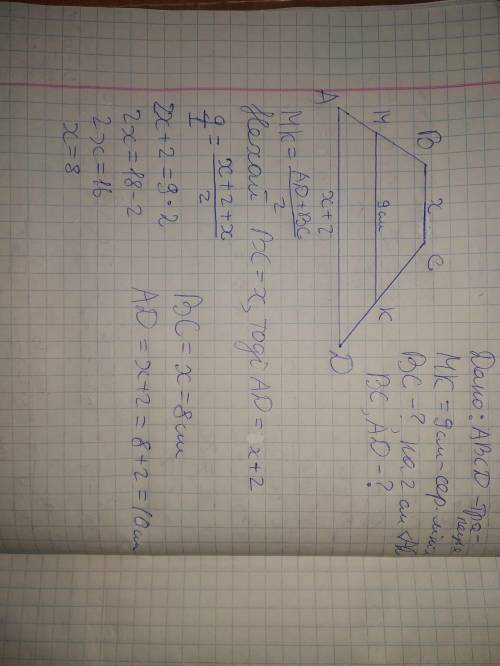 Дано: ABCD - тра-
пеція
MK = 9 см - сер. лінія,
BC - ?, на 2 см < AD
BC, AD - ?
B x C
M 9 см K
A x+2 D
MK = AD + BC / 2
Нехай BC = x, тоді AD = x+2
9/1 = x+2+x / 2
2x+2 = 9·2
2x = 18 - 2
2x = 16
x = 8
BC = x = 8 см
AD = x+2 = 8+2 = 10 см